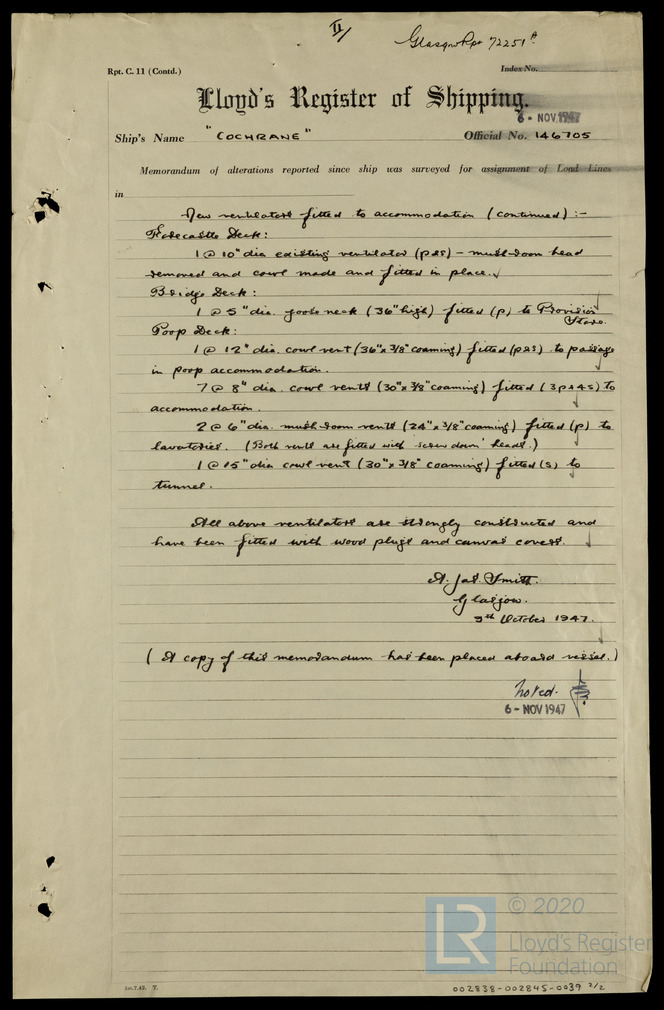 II/
Glasgow Rpt 72251A
Rpt. C. 11 (Contd.)
Index No.
Lloyd's Register of Shipping.
6 - NOV 1947
Ship's Name "COCHRANE"
Official No. 146705
Memorandum of alterations reported since ship was surveyed for assignment of Load Lines
in
New ventilators fitted to accommodation (continued) :-
Forecastle Deck:
1 @ 10" dia existing ventilator (p&s) - mushroom head
removed and cowl made and fitted in place.
Bridge Deck:
1 @ 5" dia. goose neck (36" high) fitted (p) to Provision
Store.
Poop Deck:
1 @ 12" dia. cowl vent (36" x 3/8" coaming) fitted (p&s) to passage
in poop accommodation.
7 @ 8" dia. cowl vents (30" x 3/8" coaming) fitted (3p & 4s) to
accommodation.
2 @ 6" dia. mushroom vents (24" x 3/8" coaming) fitted (p) to
lavatories. (Both vents are fitted with 'screw down' heads.)
1 @ 15" dia cowl vent (30" x 3/8" coaming) fitted (s) to
tunnel.
All above ventilators are strongly constructed and
have been fitted with wood plugs and canvas covers.
A. Jas. Smith.
Glasgow.
9th October 1947.
(A copy of this memorandum has been placed aboard vessel.)
Noted.
6 - NOV 1947
© 2020
LR
Lloyd's Register
Foundation
002838-002845-0039 2/2